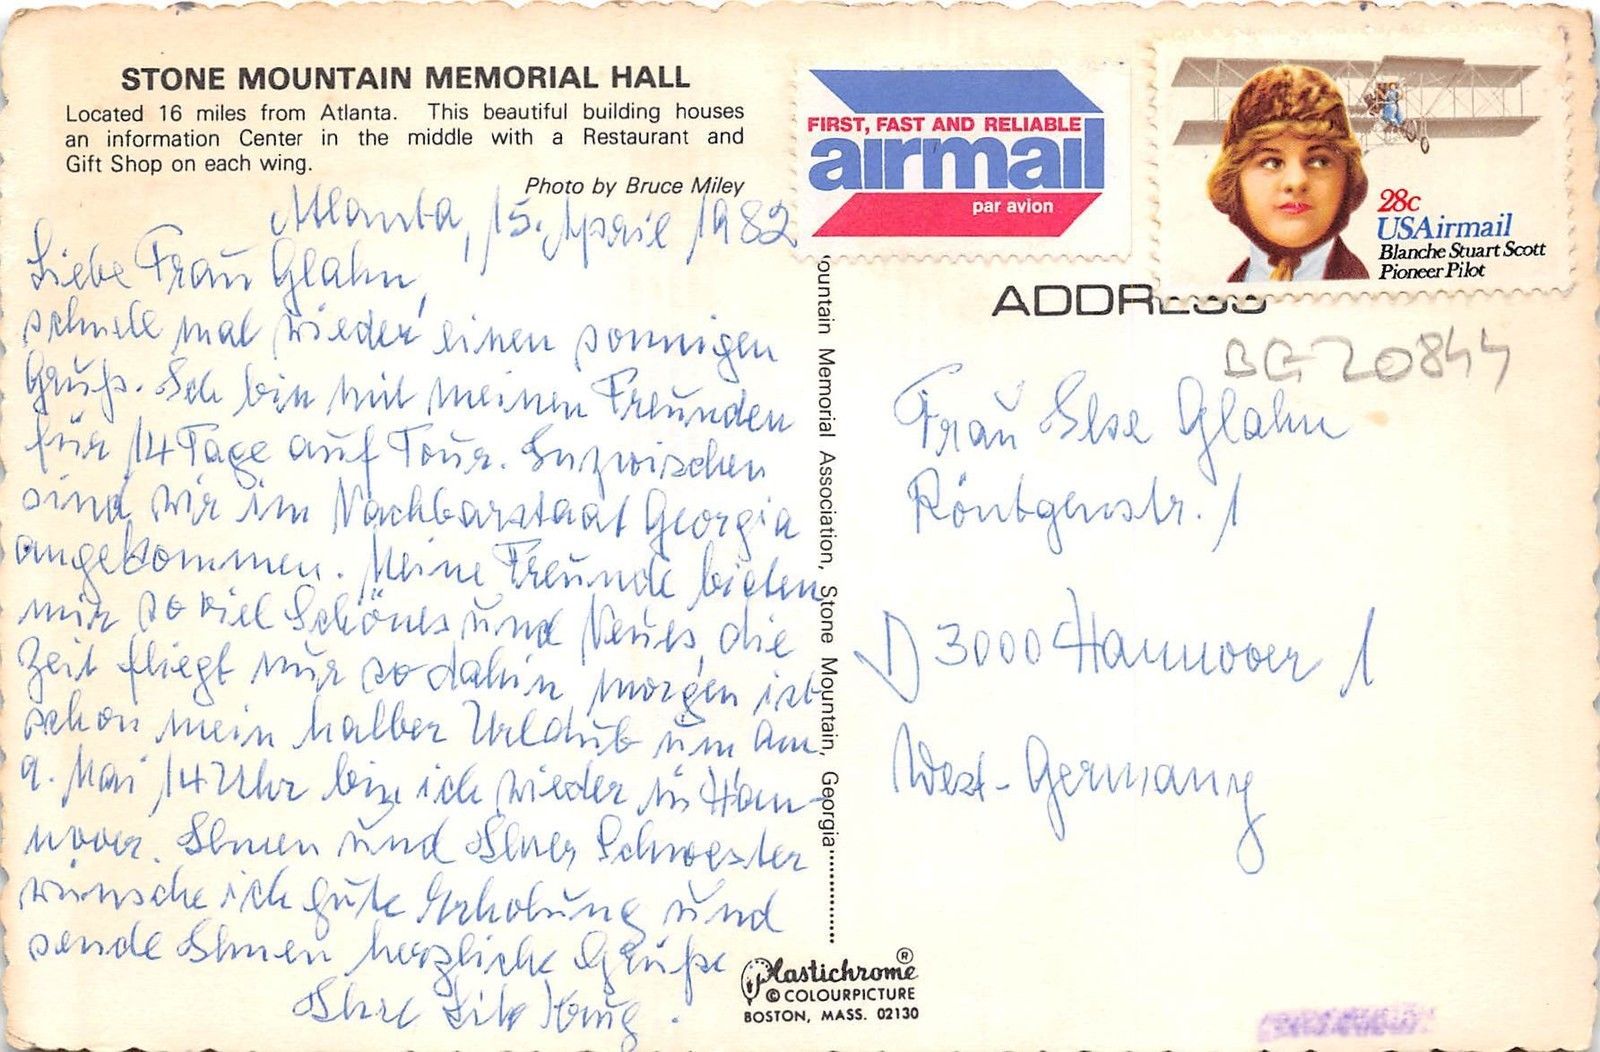 STONE MOUNTAIN MEMORIAL HALL
Located 16 miles from Atlanta. This beautiful building houses
an information Center in the middle with a Restaurant and
Gift Shop on each wing.
Photo by Bruce Miley
Atlanta, 15. April 1982
Liebe Frau Glahn,
schnell mal wieder einen sonnigen
Gruß. Ich bin mit meinen Freunden
für 14 Tage auf Tour. Inzwischen
sind wir im Nachbarstaat Georgia
angekommen. Meine Freunde bieten
mir so viel Schönes und Neues, die
Zeit fliegt nur so dahin morgen ist
schon mein halber Urlaub um, am
9. Mai 14 Uhr bin ich wieder in Han-
nover. Ihnen und Ihrer Schwester
wünsche ich gute Erholung und
sende Ihnen herzliche Grüße
Ihre
FIRST, FAST AND RELIABLE
airmail
par avion
28c
USAirmail
Blanche Stuart Scott
Pioneer Pilot
ADDRESS
BG 20844
Frau Else Glahn
Röntgenstr. 1
D 3000 Hannover 1
West-Germany
ountain Memorial Association, Stone Mountain, Georgia
Plastichrome ®
© COLOURPICTURE
BOSTON, MASS. 02130